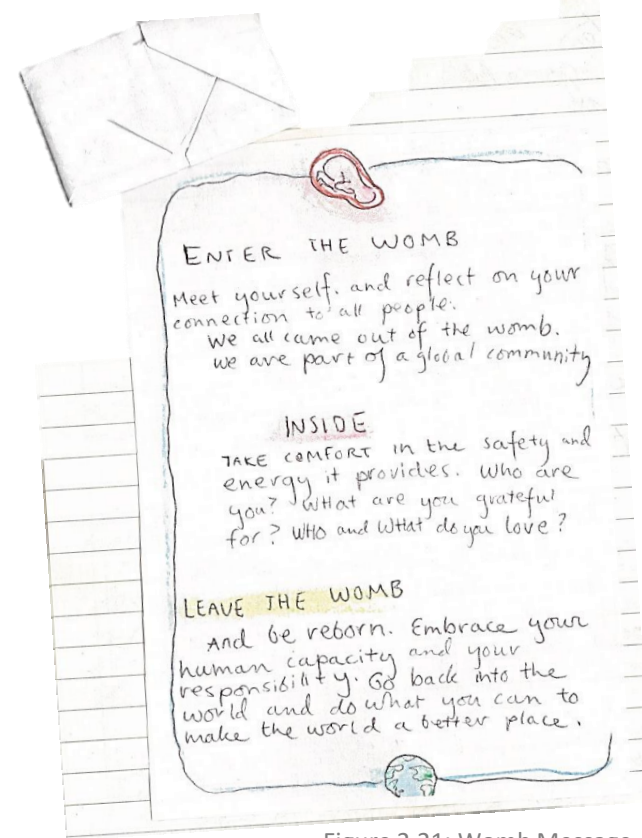 ENTER THE WOMB
Meet yourself. and reflect on your
connection to all people.
We all came out of the womb.
we are part of a global community
INSIDE
TAKE COMFORT in the safety and
energy it provides. Who are
you? What are you grateful
for? WHO and WHAT do you love?
LEAVE THE WOMB
And be reborn. Embrace your
human capacity and your
responsibility. Go back into the
world and do what you can to
make the world a better place.
Figure 2.21: Womb Message